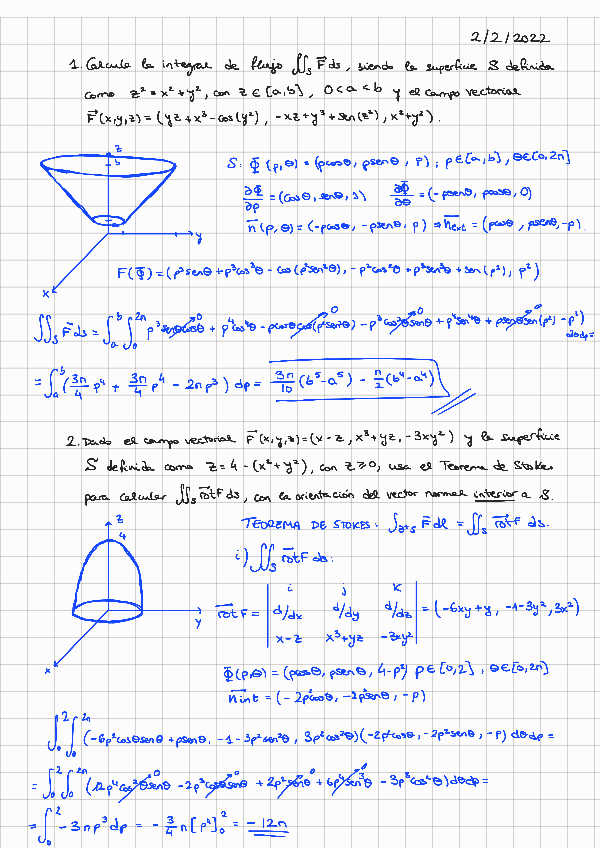 2/2/2022
1. Calcula la integral de flujo ∬_S F⃗ds, siendo la superficie S definida
como z² = x² + y², con z ∈ [a,b], 0 < a < b y el campo vectorial
F⃗(x,y,z) = (yz + x³ - cos(y²), -xz + y³ + sen(z²), x² + y²).
z
b
y
x
S: Φ̄(ρ,θ) = (ρcosθ, ρsenθ, ρ); ρ∈[a,b], θ∈[0,2π]
∂Φ̄/∂ρ = (cosθ, senθ, 1) ∂Φ̄/∂θ = (-ρsenθ, ρcosθ, 0)
n⃗(ρ,θ) = (-ρcosθ, -ρsenθ, ρ) ⇒ n⃗ext = (ρcosθ, ρsenθ, -ρ).
F(Φ̄) = (ρ²senθ + ρ³cos³θ - cos(ρ²sen²θ), -ρ²cosθ + ρ³sen³θ + sen(ρ²), ρ²)
∬_S F⃗ds = ∫_a^b ∫_0^2π ρ³senθcosθ + ρ⁴cos⁴θ - ρcosθcos(ρ²sen²θ) - ρ³cosθsenθ + ρ⁴sen⁴θ + ρsenθsen(ρ²) - ρ³) dθdρ =
= ∫_a^b (3π/4 ρ⁴ + 3π/4 ρ⁴ - 2πρ³) dρ = 3π/10 (b⁵-a⁵) - π/2 (b⁴-a⁴)
2. Dado el campo vectorial F⃗(x,y,z) = (x-z, x³+yz, -3xy²) y la superficie
S definida como z = 4 - (x²+y²), con z ≥ 0, usa el Teorema de Stokes
para calcular ∬_S rotF ds, con la orientación del vector normal interior a S.
z
4
y
x
TEOREMA DE STOKES: ∫_∂+S F⃗dl = ∬_S rotF ds.
i) ∬_S rotF ds:
i j k
rotF = d/dx d/dy d/dz = (-6xy+y, -1-3y², 3x²)
x-z x³+yz -3xy²
Φ̄(ρ,θ) = (ρcosθ, ρsenθ, 4-ρ²) ρ∈[0,2], θ∈[0,2π]
n⃗int = (-2ρ²cosθ, -2ρ²senθ, -ρ)
∫_0^2 ∫_0^2π (-6ρ²cosθsenθ + ρsenθ, -1-3ρ²sen²θ, 3ρ²cos²θ)(-2ρ²cosθ, -2ρ²senθ, -ρ) dθdρ =
= ∫_0^2 ∫_0^2π (12ρ⁴cos²θsenθ - 2ρ³cosθsenθ + 2ρ²senθ + 6ρ⁴sen³θ - 3ρ³cos²θ) dθdρ =
= ∫_0^2 -3πρ³dρ = -3/4 π[ρ⁴]_0^2 = -12π